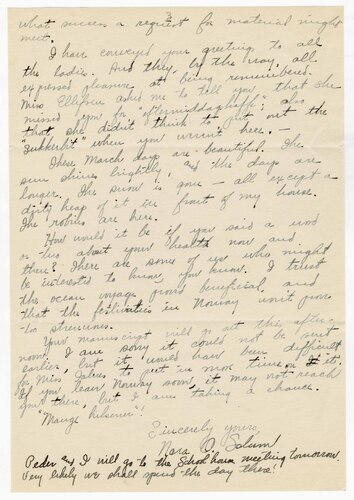 what success a request for material might
meet.
I have conveyed your greeting to all
the ladies. And they, by the way, all
expressed pleasure at being remembered.
Miss Ellefson asked me to tell you that she
missed you for "eftermiddagskaffe"; also
that she didn't think to put out the
"sukkerbit" when you weren't here. –
These March days are beautiful. The
sun shines brightly, and the days are
longer. The snow is gone – all except a
dirty heap of it in front of my house.
The robins are here.
How would it be if you said a word
or two about your health now and
then? There are some of us who might
be interested to know, you know. I trust
the ocean voyage proved beneficial, and
that the festivities in Norway won't prove
too strenuous.
Your manuscript will go out this after-
noon. I am sorry it could not be sent
earlier, but it would have been difficult
for Miss to put in more time on it.
If you leave Norway soon, it may not reach
you there, but I am taking a chance.
"Mange hilsener"!
Sincerely yours,
Nora O. Solum
Peder and I will go to the School house meeting tomorrow.
Very likely we shall spend the day there!